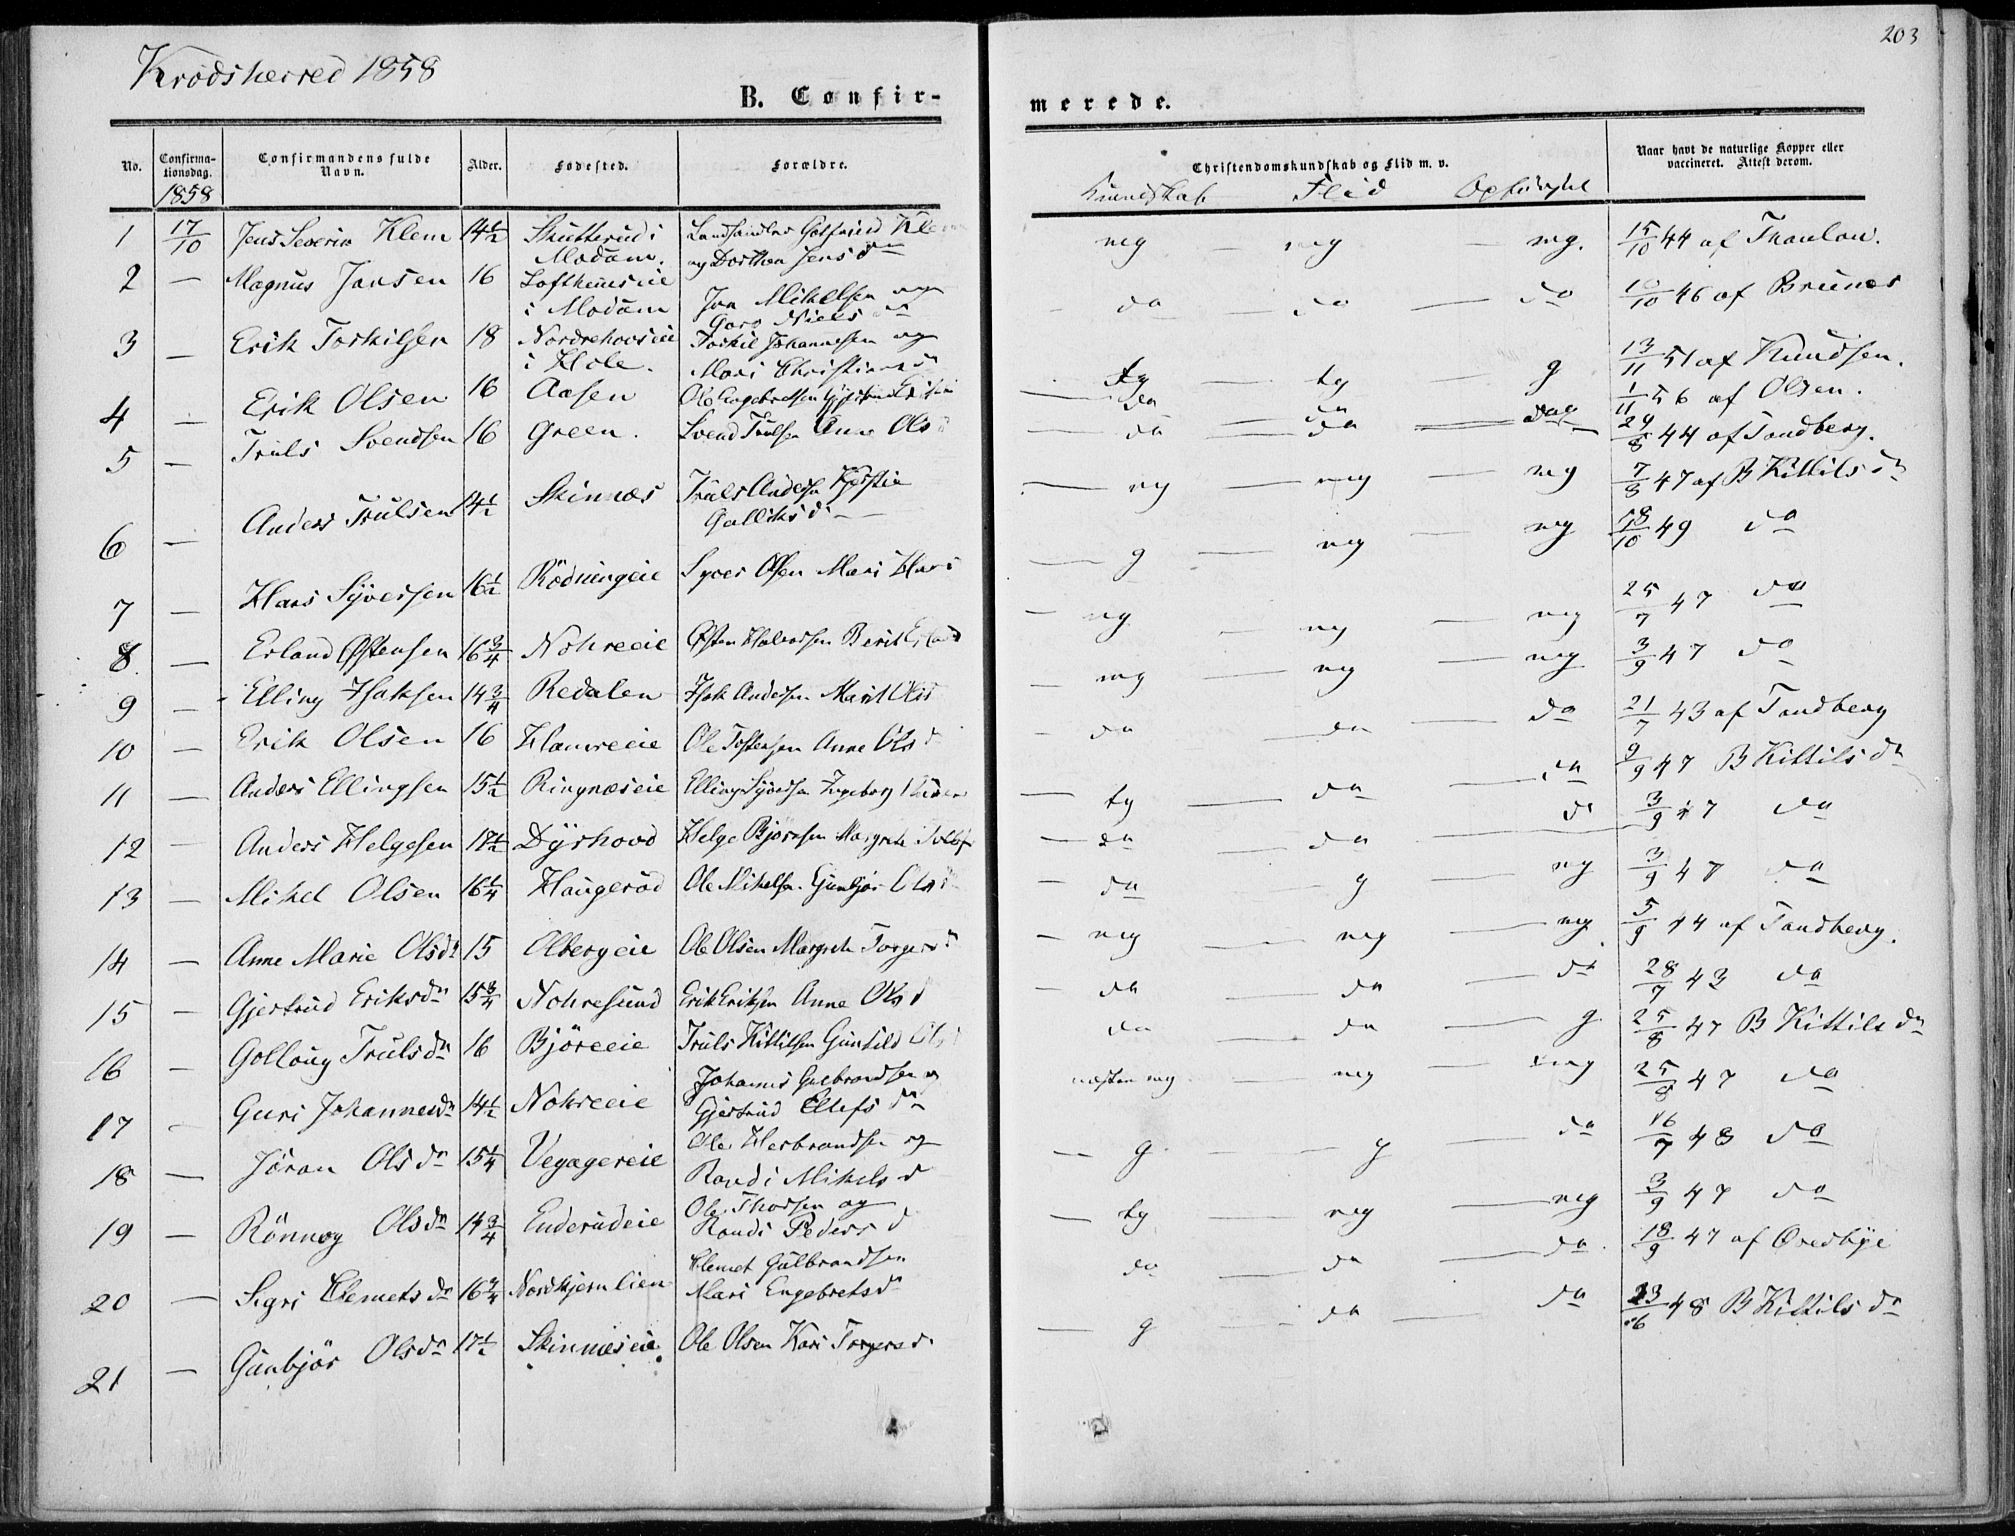 203
Krødsherred 1858
B. Confir-
merede.
No.
Confirma-
tionsdag.
Confirmandens fulde
Navn.
Alder.
Fødested.
Forældre.
Christendomskundskab og Flid m. v.
Naar havt de naturlige Kopper eller
vaccineret. Attest derom.
1858
Kundskab Flid Opførsel
1 17/10 Jens Severin Klem 14½ Skutterud i Landhandler Gotfried Klem
Modum. og Dorthea Jensdr
meg — meg — meg. 15/10 44 af Thaulow.
2 — Magnus Jansen 16 Loftheimseie
i Modum Jon Mikelsen og
Goro Niels dr
do do — do 10/10 46 af Brunes
3 — Erik Torkilsen 18 Nordrehovseie Torkil Johannesen og
i Hole. Mari Christians d
tg — tg — g 13/11 51 af Knudsen.
4 — Erik Olsen 16 Aasen Ole Engebretsen
do do 1/11 56 af Olsen.
5 — Truls Svendsen 16 Green. Svend Trulsen Anne Ols d
do — do 24/8 44 af Tandberg.
6 — Anders Trulsen 14½ Skinnæs Truls Andersen Kjersti
Gulliks d
— mg — meg — meg 7/8 47 af B Kittilsdr
7 — Hans Syversen 16½ Rødningeie Syver Olsen Mari Hans
— g — meg — meg 18/10 49 do
8 — Erland Østensen 16¾ Nohreeie Østen Halvorsen Berit Erlands
— mg — mg — meg 25/7 47 do
9 — Elling Isaksen 14¾ Redalen Isak Andersen Marit Ols
— meg — meg — meg 3/9 47 do
10 — Erik Olsen 16 Hamreeie Ole Tostensen Anne Ols d
— do do — do 21/7 43 af Tandberg
11 — Anders Ellingsen 15½ Ringnæseie Elling Syversen Ingeborg
— tg — do — do 9/9 47 B Kittilsdr
12 — Anders Helgesen 17½ Dyrhovd Helge Bjørnsen Margrete
— do — do do 3/9 47 do
13 — Mikel Olsen 16¼ Haugerud Ole Mikelsen Gunbjør Ols
— do — g — mg 3/9 47 do
14 — Anne Marie Olsdr 15 Olbergeie Ole Olsen Margrete Torgersd
— meg — meg — meg. 5/9 44 af Tandberg.
15 — Gjertrud Eriksdr 15¾ Nohresund Erik Eriksen Anne Ols d
— do — do — do 28/7 43 do
16 — Gollaug Trulsdr 16 Bjøreeie Truls Kittilsen Gunhild Ols
do — do — g 25/8 47 B Kittilsdr
17 — Guri Johannesdr 14½ Nohreeie Johannes Gulbrandsen og
Gjertrud Ellefs dr
næsten meg — meg — meg 25/8 47 do
18 — Jøran Olsdr 15¼ Vegagereie Ole Herbrandsen og
Randi Mikels d
— g — g — do 16/7 48 do
19 — Rønnog Olsdr 14¾ Enderudeie Ole Thorsen og
Randi Peders d
— tg — meg — meg 3/9 47 do
20 — Sigri Clemetsdr 16¾ Nordhjernlien Clemet Gulbrandsen
Mari Engebretsdr
do — do — do. 18/9 47 af Oredbye
21 — Gunbjør Olsdr 17½ Skinnæseie Ole Olsen Kari Torgersd.
— g — do — do 23/6 48 B Kittilsdr